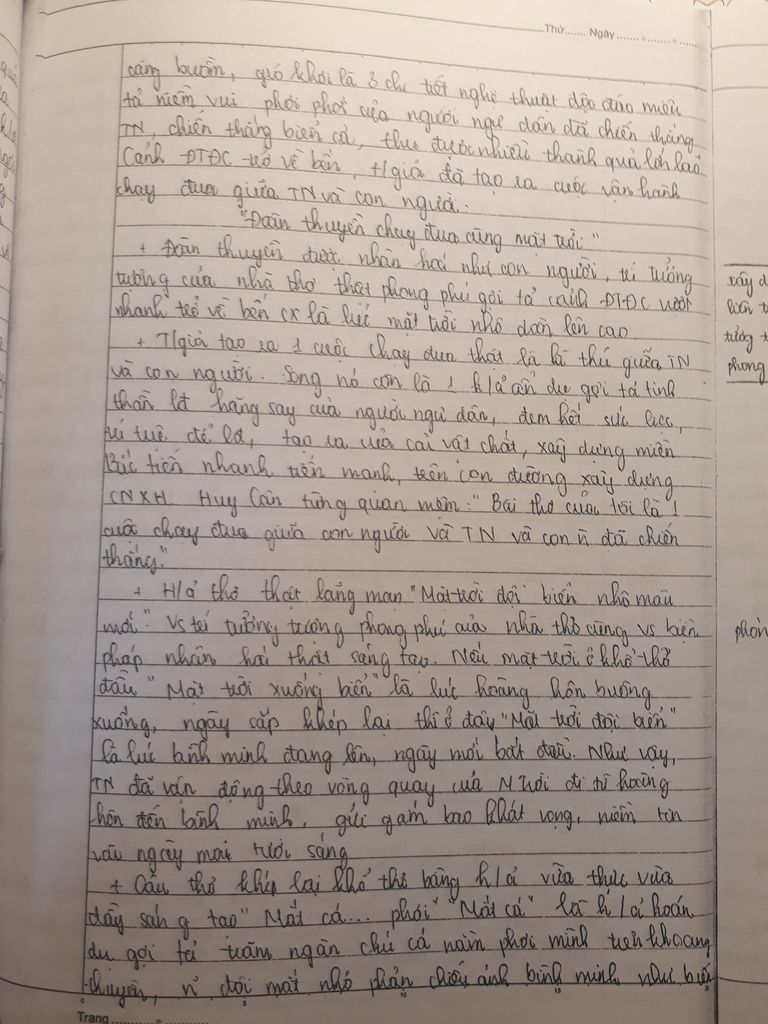 Thứ....... Ngày.......
căng buồm, gió khơi là 3 chi tiết nghệ thuật độc đáo miêu
tả niềm vui phơi phới của người ngư dân đã chiến thắng
TN, chiến thắng biển cả, thu được nhiều thành quả lớn lao
Cảnh ĐTĐC trở về bến, t/giả đã tạo ra cuộc vận hành
chạy đua giữa TN và con người.
"Đoàn thuyền chạy đua cùng mặt trời"
+ Đoàn thuyền được nhân hoá như con người, trí tưởng
tượng của nhà thơ thật phong phú gợi tả cảnh ĐTĐC vượt
nhanh trở về bến cx là lúc mặt trời nhô dần lên cao
+ T/giả tạo ra 1 cuộc chạy đua thật là kì thú giữa TN
và con người. Song nó còn là 1 h/ả ẩn dụ gợi tả tinh
thần lđ hăng say của người ngư dân, đem hết sức lực,
trí tuệ để lđ, tạo ra của cải vật chất, xây dựng miền
Bắc tiến nhanh tiến mạnh, trên con đường xây dựng
CNXH. Huy Cận từng quan niệm: "Bài thơ của tôi là 1
cuộc chạy đua giữa con người và TN và con n̄ đã chiến
thắng."
+ H/ả thơ thật lãng mạn "Mặt trời đội biển nhô màu
mới" vs trí tưởng tượng phong phú của nhà thơ cùng vs biện
pháp nhân hoá thật sáng tạo. Nếu mặt trời ở khổ thơ
đầu "Mặt trời xuống biển" là lúc hoàng hôn buông
xuống, ngày sắp khép lại thì ở đây "Mặt trời đội biển"
là lúc bình minh đang lên, ngày mới bắt đầu. Như vậy,
TN đã vận động theo vòng quay của M trời đi từ hoàng
hôn đến bình minh, gửi gắm bao khát vọng, niềm tin
vào ngày mai tươi sáng
+ Câu thơ khép lại khổ thơ bằng h/ả vừa thực vừa
đầy sáng tạo "Mắt cá... phơi" "Mắt cá" là h/ả hoán
dụ gợi tả trăm ngàn chú cá nằm phơi mình trên khoang
thuyền, n̄ đôi mắt nhỏ phản chiếu ánh bình minh như biết
Trang
xây d
liên t
tưởng t
phong
phón